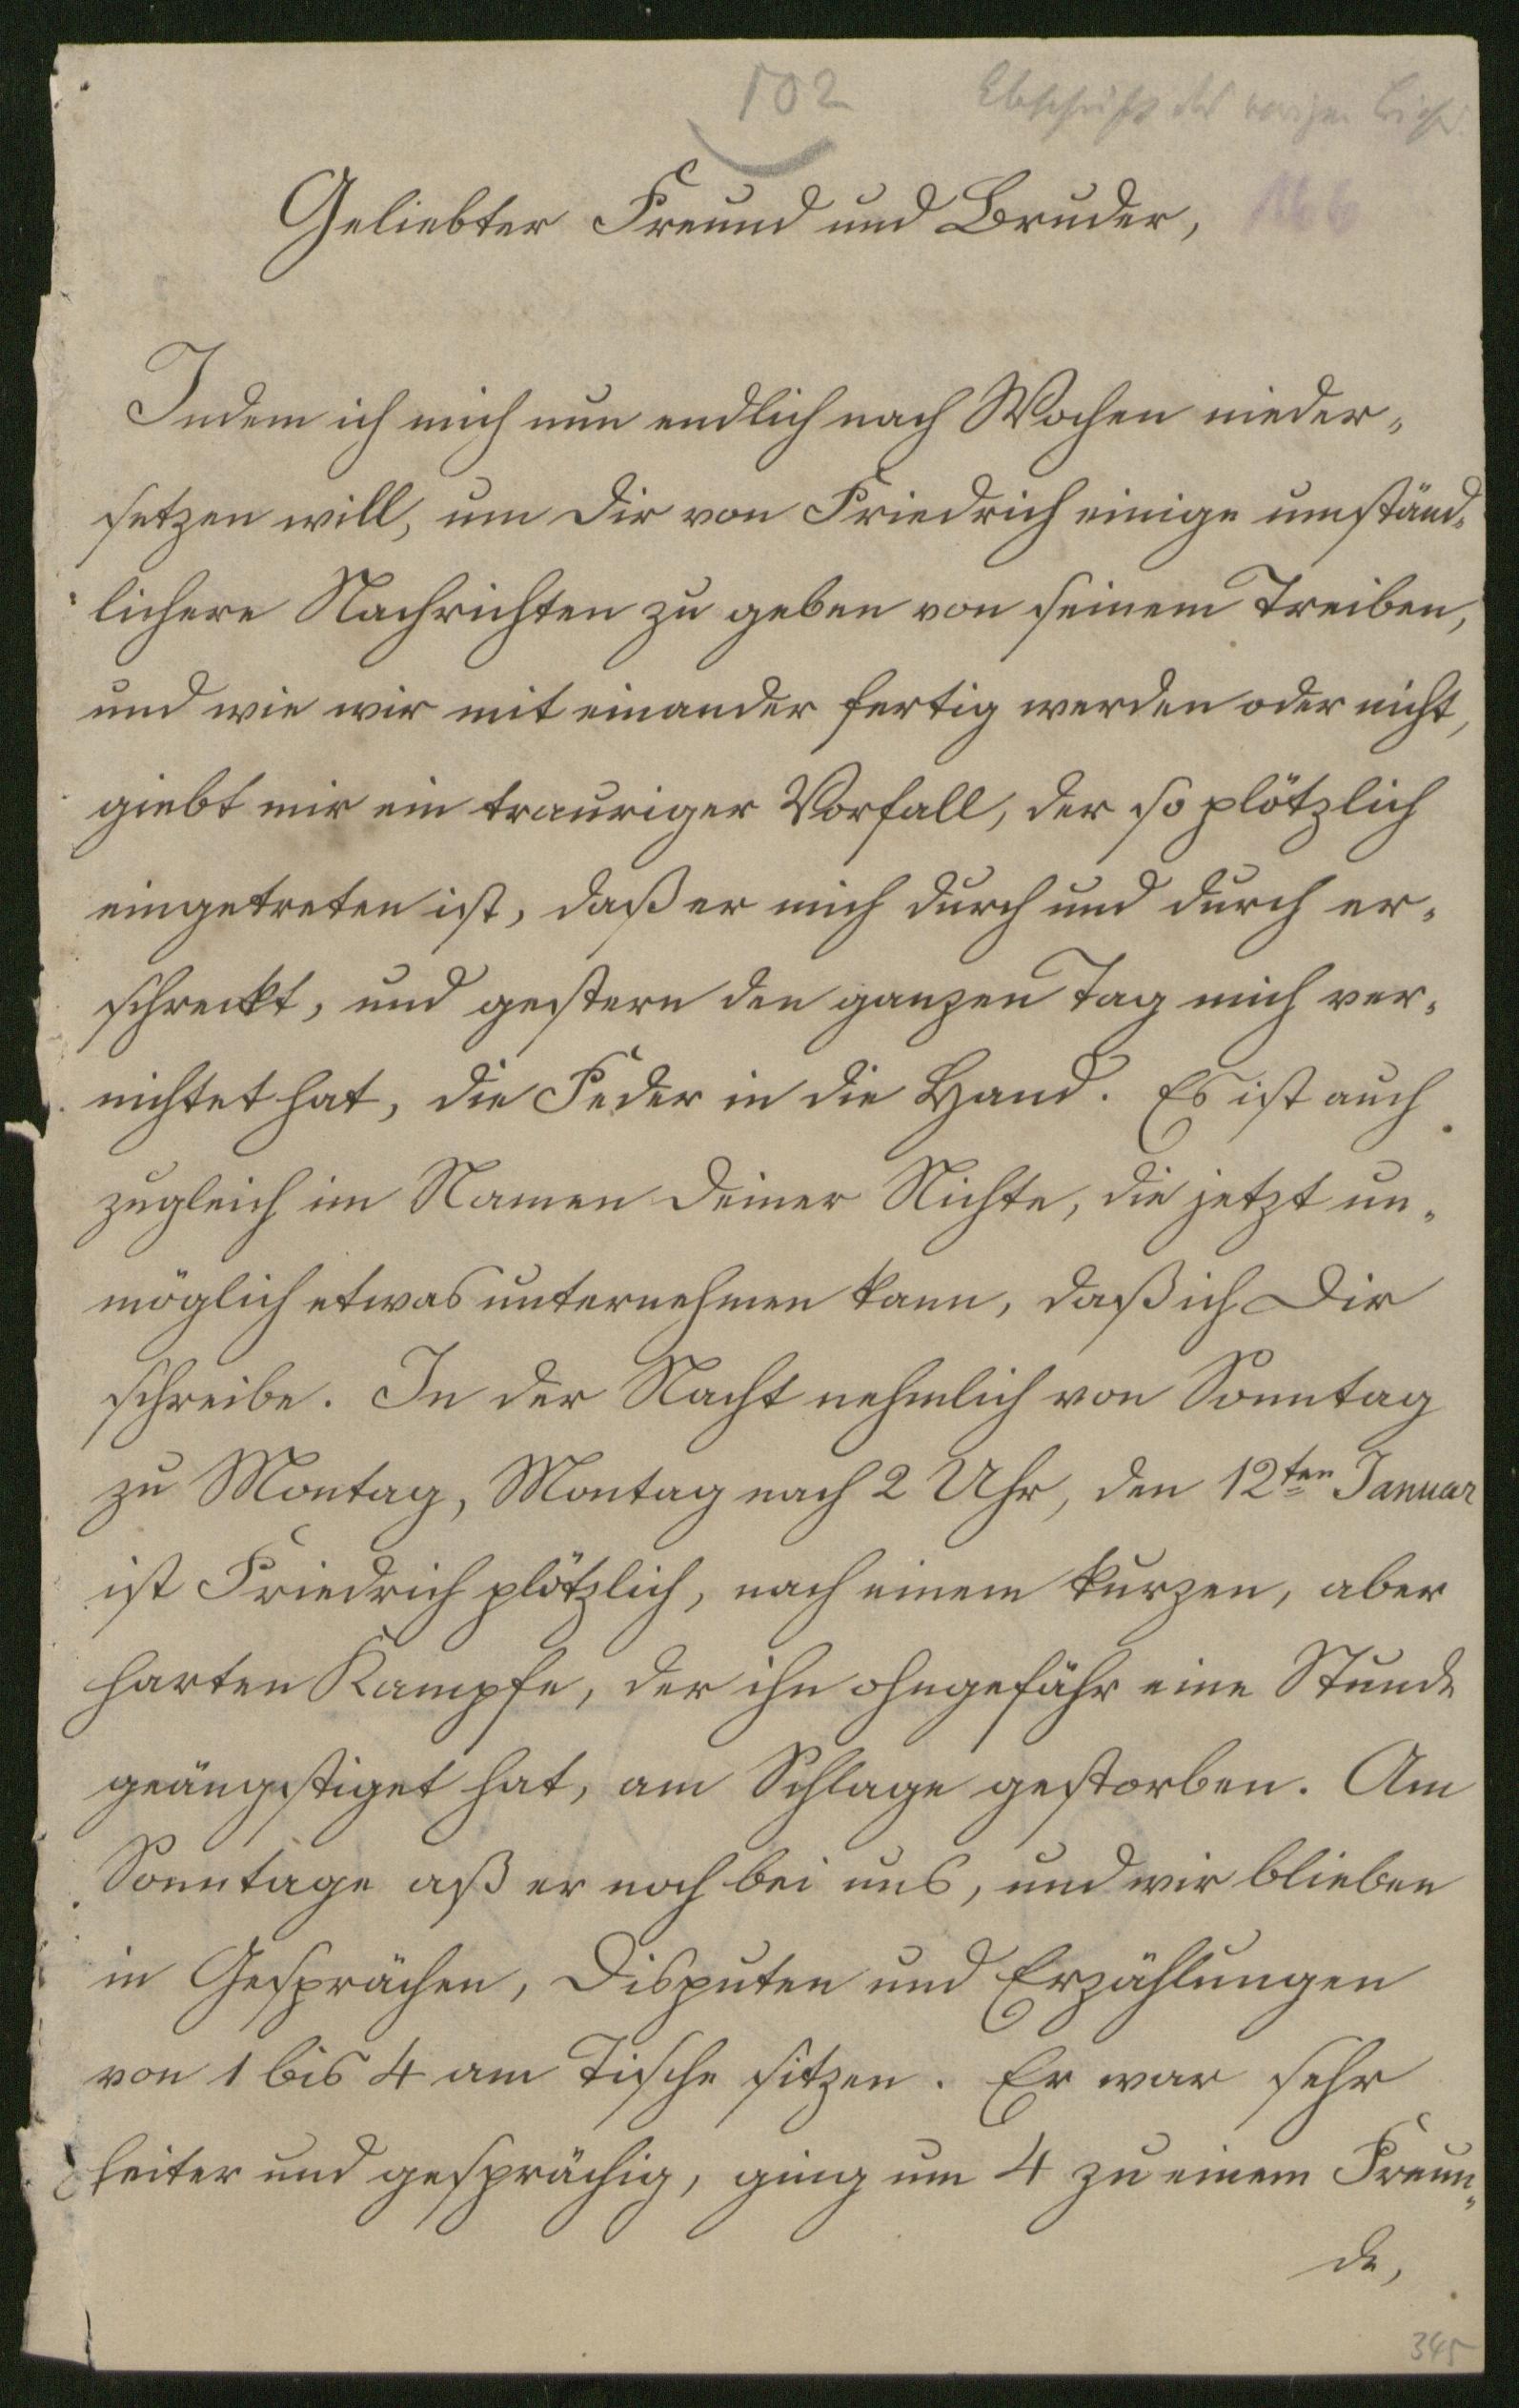 102
Abschrift des vorigen Briefs.
Geliebter Freund und Bruder,
166
Indem ich mich nun endlich nach Wochen nieder-
setzen will, um Dir von Friedrich einige umständ-
lichere Nachrichten zu geben von seinem Treiben,
und wie wir mit einander fertig werden oder nicht,
giebt mir ein trauriger Vorfall, der so plötzlich
eingetreten ist, daß er mich durch und durch er-
schreckt, und gestern den ganzen Tag mich ver-
nichtet hat, die Feder in die Hand. Es ist auch
zugleich im Namen Deiner Nichte, die jetzt un-
möglich etwas unternehmen kann, daß ich Dir
schreibe. In der Nacht nehmlich von Sonntag
zu Montag, Montag nach 2 Uhr, den 12ten Januar
ist Friedrich plötzlich, nach einem kurzen, aber
harten Kampfe, der ihn ohngefähr eine Stunde
geängstiget hat, am Schlage gestorben. Am
Sonntage aß er noch bei uns, und wir blieben
in Gesprächen, Disputen und Erzählungen
von 1 bis 4 am Tische sitzen. Er war sehr
heiter und gesprächig, ging um 4 zu einem Freun-
de,
345